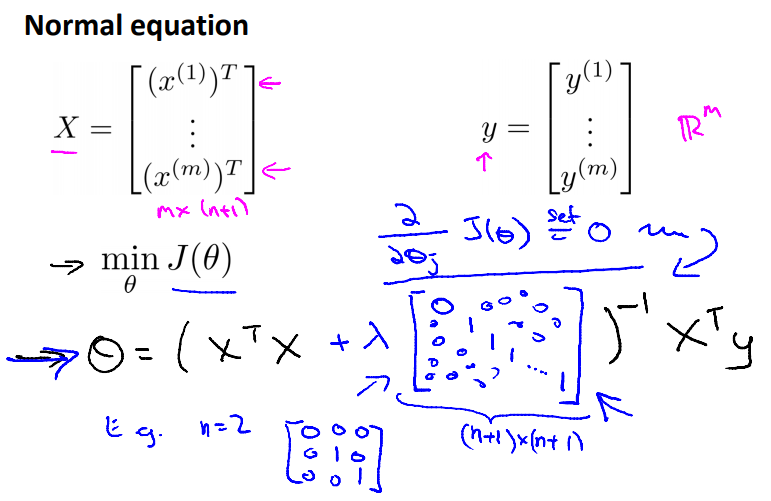 Normal equation
X = [ (x^{(1)})^T ⋮ (x^{(m)})^T ]
m×(n+1)
y = [ y^{(1)} ⋮ y^{(m)} ]
ℝ^m
→ min_θ J(θ)
∂/∂θ_j J(θ) set = 0
→ θ = ( X^T X + λ [ 0 0 0 0 0 0 1 0 0 0 1 0 0 1 0 0 ⋱ 1 ] )^{-1} X^T y
(n+1)×(n+1)
E.g. n=2 [ 0 0 0
0 1 0
0 0 1 ]